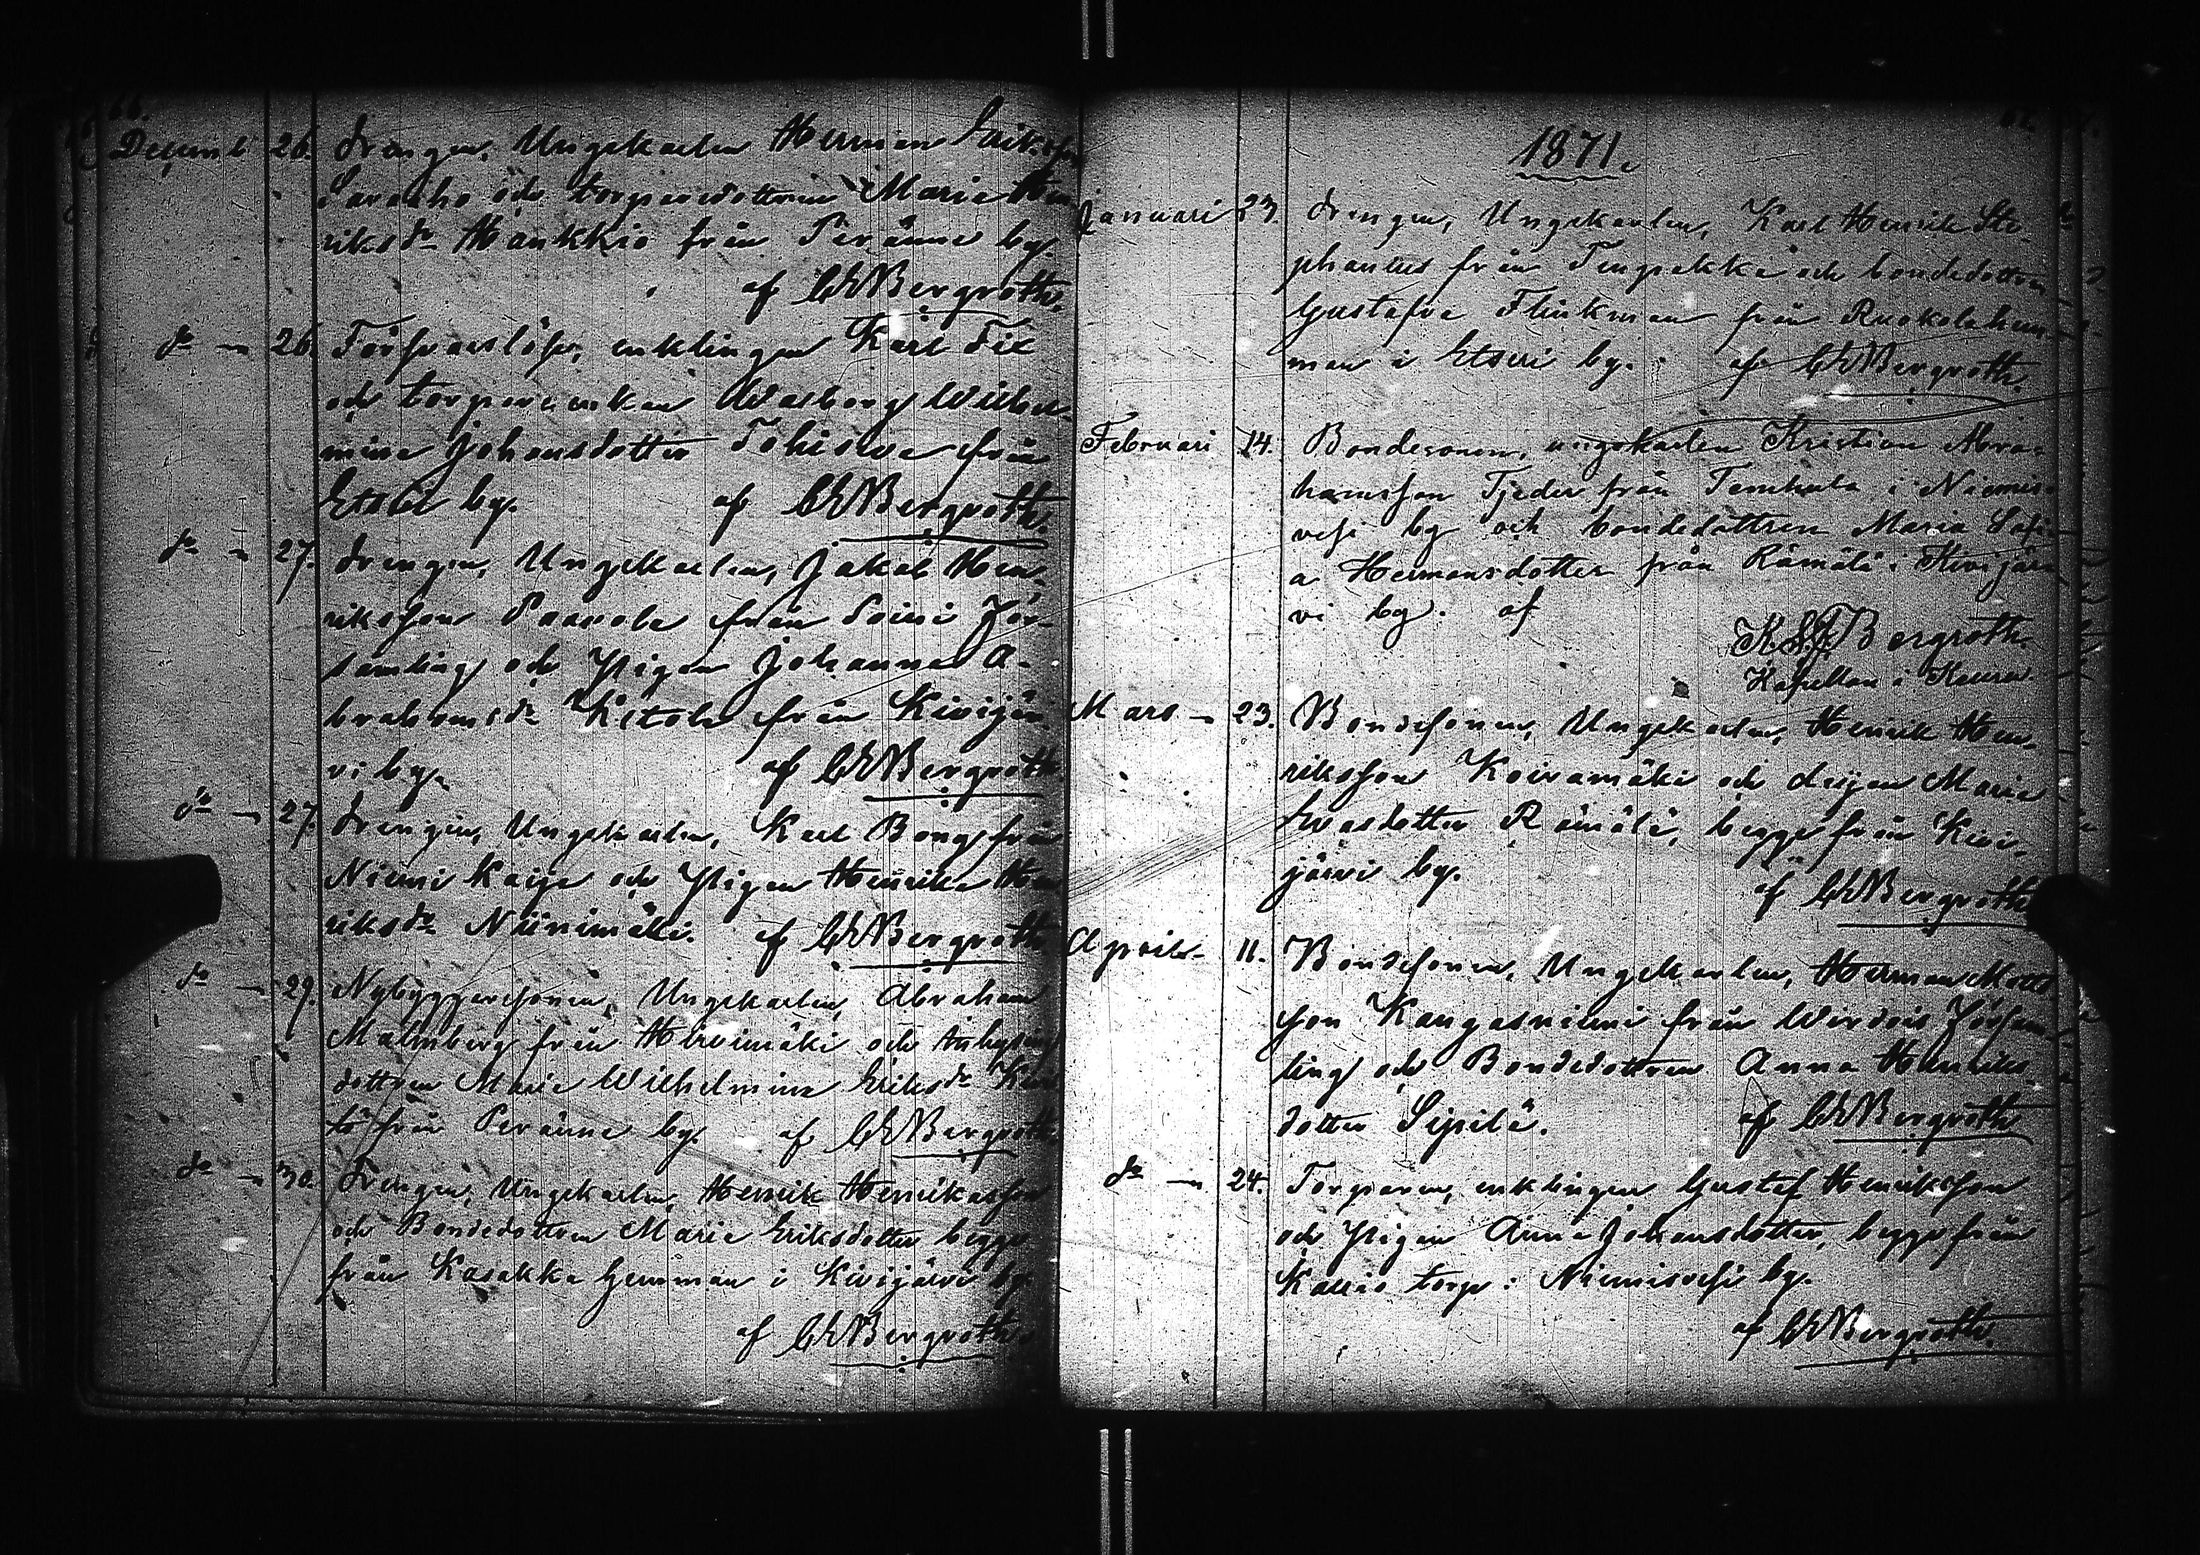 66.
Decemb 26. Drengen, Ungekarlen Herman Eriksson
Saraaho och torparedottren Maria Hen-
riksdr Haukkio från Peränne by.
af CEBergroth.
do — 26. Försvarslöse, enklingen Karl Fil
och torpareenkan Walborg Wilhel-
mina Johansdotter Tohisеva från
Etseri by. af CEBergroth.
do — 27. Drengen, Ungekarlen, Jakob Hen-
riksson Paavola från Soini För-
samling och Pigan Johanna A-
brahamsdr Ketola från Kivijär-
vi by. af CEBergroth
do — 27. Drengen, Ungekarlen, Karl Bong från
Niemi Kaija och Pigan Henrika Hen
riksdr Niinimäki. af CEBergroth.
do — 29. Nybyggaresonen, Ungekarlen, Abraham
Malmberg från Hirvimäki och
dottren Maria Wilhelmina Eriksdr
från Peränne by. af CEBergroth.
do — 30. Drengen, Ungekarlen, Henrik Henriksson
och Bondedottren Maria Eriksdotter begge
från Kasakka hemman i Kivijärvi by.
af CEBergroth.
1871.
Januari 23. Drengen, Ungekarlen, Karl Henrik Ste-
phanus från Tengsekkä och bondedottren
Gustafva Flinkman från Ruokola hem-
man i Etseri by. af CEBergroth.
Februari 14. Bondesonen, ungekarlen Kristian Abra-
hamsson Tjeder från Temhula i Niemis-
vesi by och bondedottren Maria Sofi-
a Hermansdotter från Rämälä i Kivijär-
vi by. af
K. S. F. Bergroth.
Kapellan i Keuru.
Mars — 23. Bondesonen, Ungekarlen, Henrik Hen-
riksson Koiramäki och deijan Maria
Evasdotter Rämälä, begge från Kivi-
järvi by. af CEBergroth
April — 11. Bondesonen, Ungekarlen, Herman Matts-
son Kangasniemi från Wirdois Försam-
ling och Bondedottren Anna Henriks-
dotter Sipilä. af CEBergroth
do — 24. Torparen, enklingen Gustaf Henriksson
och Pigan Anna Johansdotter, begge från
Kallio torp i Niemisvesi by.
af CEBergroth.